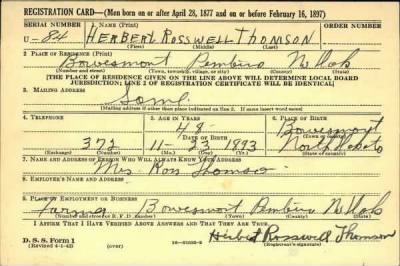 REGISTRATION CARD—(Men born on or after April 28, 1877 and on or before February 16, 1897)
SERIAL NUMBER 1. NAME (Print) ORDER NUMBER
U - 84 HERBERT ROSSWELL THOMSON
(First) (Middle) (Last)
2. PLACE OF RESIDENCE (Print)
Bowesmont Pembina N Dak
(Number and street) (Town, township, village, or city) (County) (State)
[THE PLACE OF RESIDENCE GIVEN ON THE LINE ABOVE WILL DETERMINE LOCAL BOARD
JURISDICTION; LINE 2 OF REGISTRATION CERTIFICATE WILL BE IDENTICAL]
3. MAILING ADDRESS
Same
[Mailing address if other than place indicated on line 2. If same insert word same]
4. TELEPHONE 5. AGE IN YEARS 6. PLACE OF BIRTH
48 Bowesmont
DATE OF BIRTH (Town or county)
372 11-23 1893 North Dakota
(Exchange) (Number) (Mo.) (Day) (Yr.) (State or country)
7. NAME AND ADDRESS OF PERSON WHO WILL ALWAYS KNOW YOUR ADDRESS
Mrs Ross Thomson
8. EMPLOYER'S NAME AND ADDRESS
9. PLACE OF EMPLOYMENT OR BUSINESS
Farming Bowesmont Pembina N Dak
(Number and street or R. F. D. number) (Town) (County) (State)
I AFFIRM THAT I HAVE VERIFIED ABOVE ANSWERS AND THAT THEY ARE TRUE.
D. S. S. Form 1 Herbert Rosswell Thomson
(Revised 4-1-42) (over) (Registrant's signature)